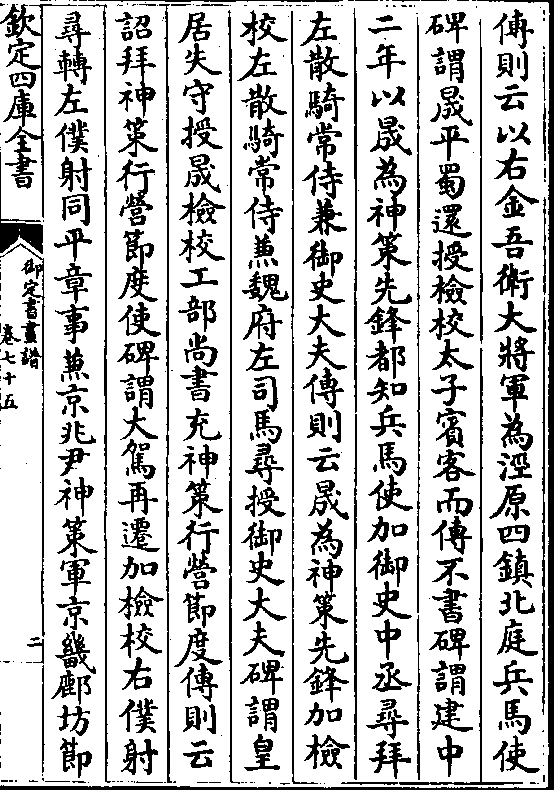 傳則云以右金吾衛大將軍為涇原四鎮北庭兵馬使
碑謂晟平蜀還授檢校太子賓客而傳不書碑謂建中
二年以晟為神策先鋒都知兵馬使加御史中丞尋拜
左散騎常侍兼御史大夫傳則云晟為神策先鋒加檢
校左散騎常侍兼魏府左司馬尋授御史大夫碑謂皇
居失守授晟檢校工部尚書充神策行營節度傳則云
詔拜神策行營節度使碑謂大駕再遷加檢校右僕射
尋轉左僕射同平章事兼京兆尹神策軍京畿鄜坊節
欽定四庫全書
御定書畫譜
卷七十五
二